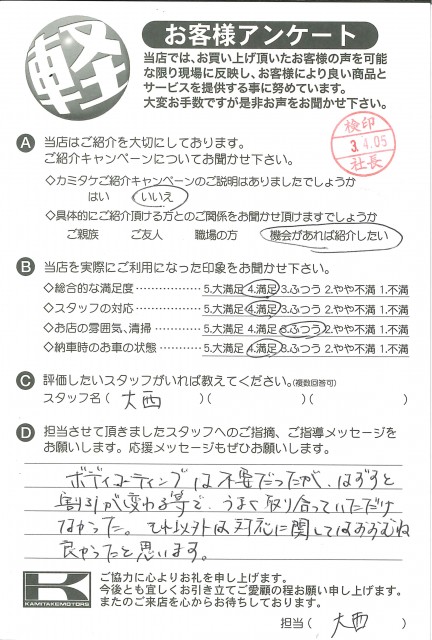 軽
お客様アンケート
当店では、お買い上げ頂いたお客様の声を可能
な限り現場に反映し、お客様により良い商品と
サービスを提供する事に努めています。
大変お手数ですが是非お声をお聞かせ下さい。
検印
3.4.05
社長
A 当店はご紹介を大切にしております。
ご紹介キャンペーンについてお聞かせ下さい。
◇カミタケご紹介キャンペーンのご説明はありましたでしょうか
はい いいえ
◇具体的にご紹介頂ける方とのご関係をお聞かせ頂けますでしょうか
ご親族 ご友人 職場の方 機会があれば紹介したい
B 当店を実際にご利用になった印象をお聞かせ下さい。
◇総合的な満足度……………5.大満足 4.満足 3.ふつう 2.やや不満 1.不満
◇スタッフの対応……………5.大満足 4.満足 3.ふつう 2.やや不満 1.不満
◇お店の雰囲気、清掃………5.大満足 4.満足 3.ふつう 2.やや不満 1.不満
◇納車時のお車の状態………5.大満足 4.満足 3.ふつう 2.やや不満 1.不満
C 評価したいスタッフがいれば教えてください。(複数回答可)
スタッフ名( 大西 )( )( )
D 担当させて頂きましたスタッフへのご指摘、ご指導メッセージを
お願いします。応援メッセージもぜひお願いします。
ボディコーティングは不要だったが、はずすと
割引が変わる等で、うまく取り合っていただけ
なかった。それ以外は対応に関してはおおむね
良かったと思います。
K
KAMITAKEMOTORS
ご協力に心よりお礼を申し上げます。
今後とも宜しくお引き立てご愛顧の程お願い申し上げます。
またのご来店を心からお待ちしております。
担当( 大西 )